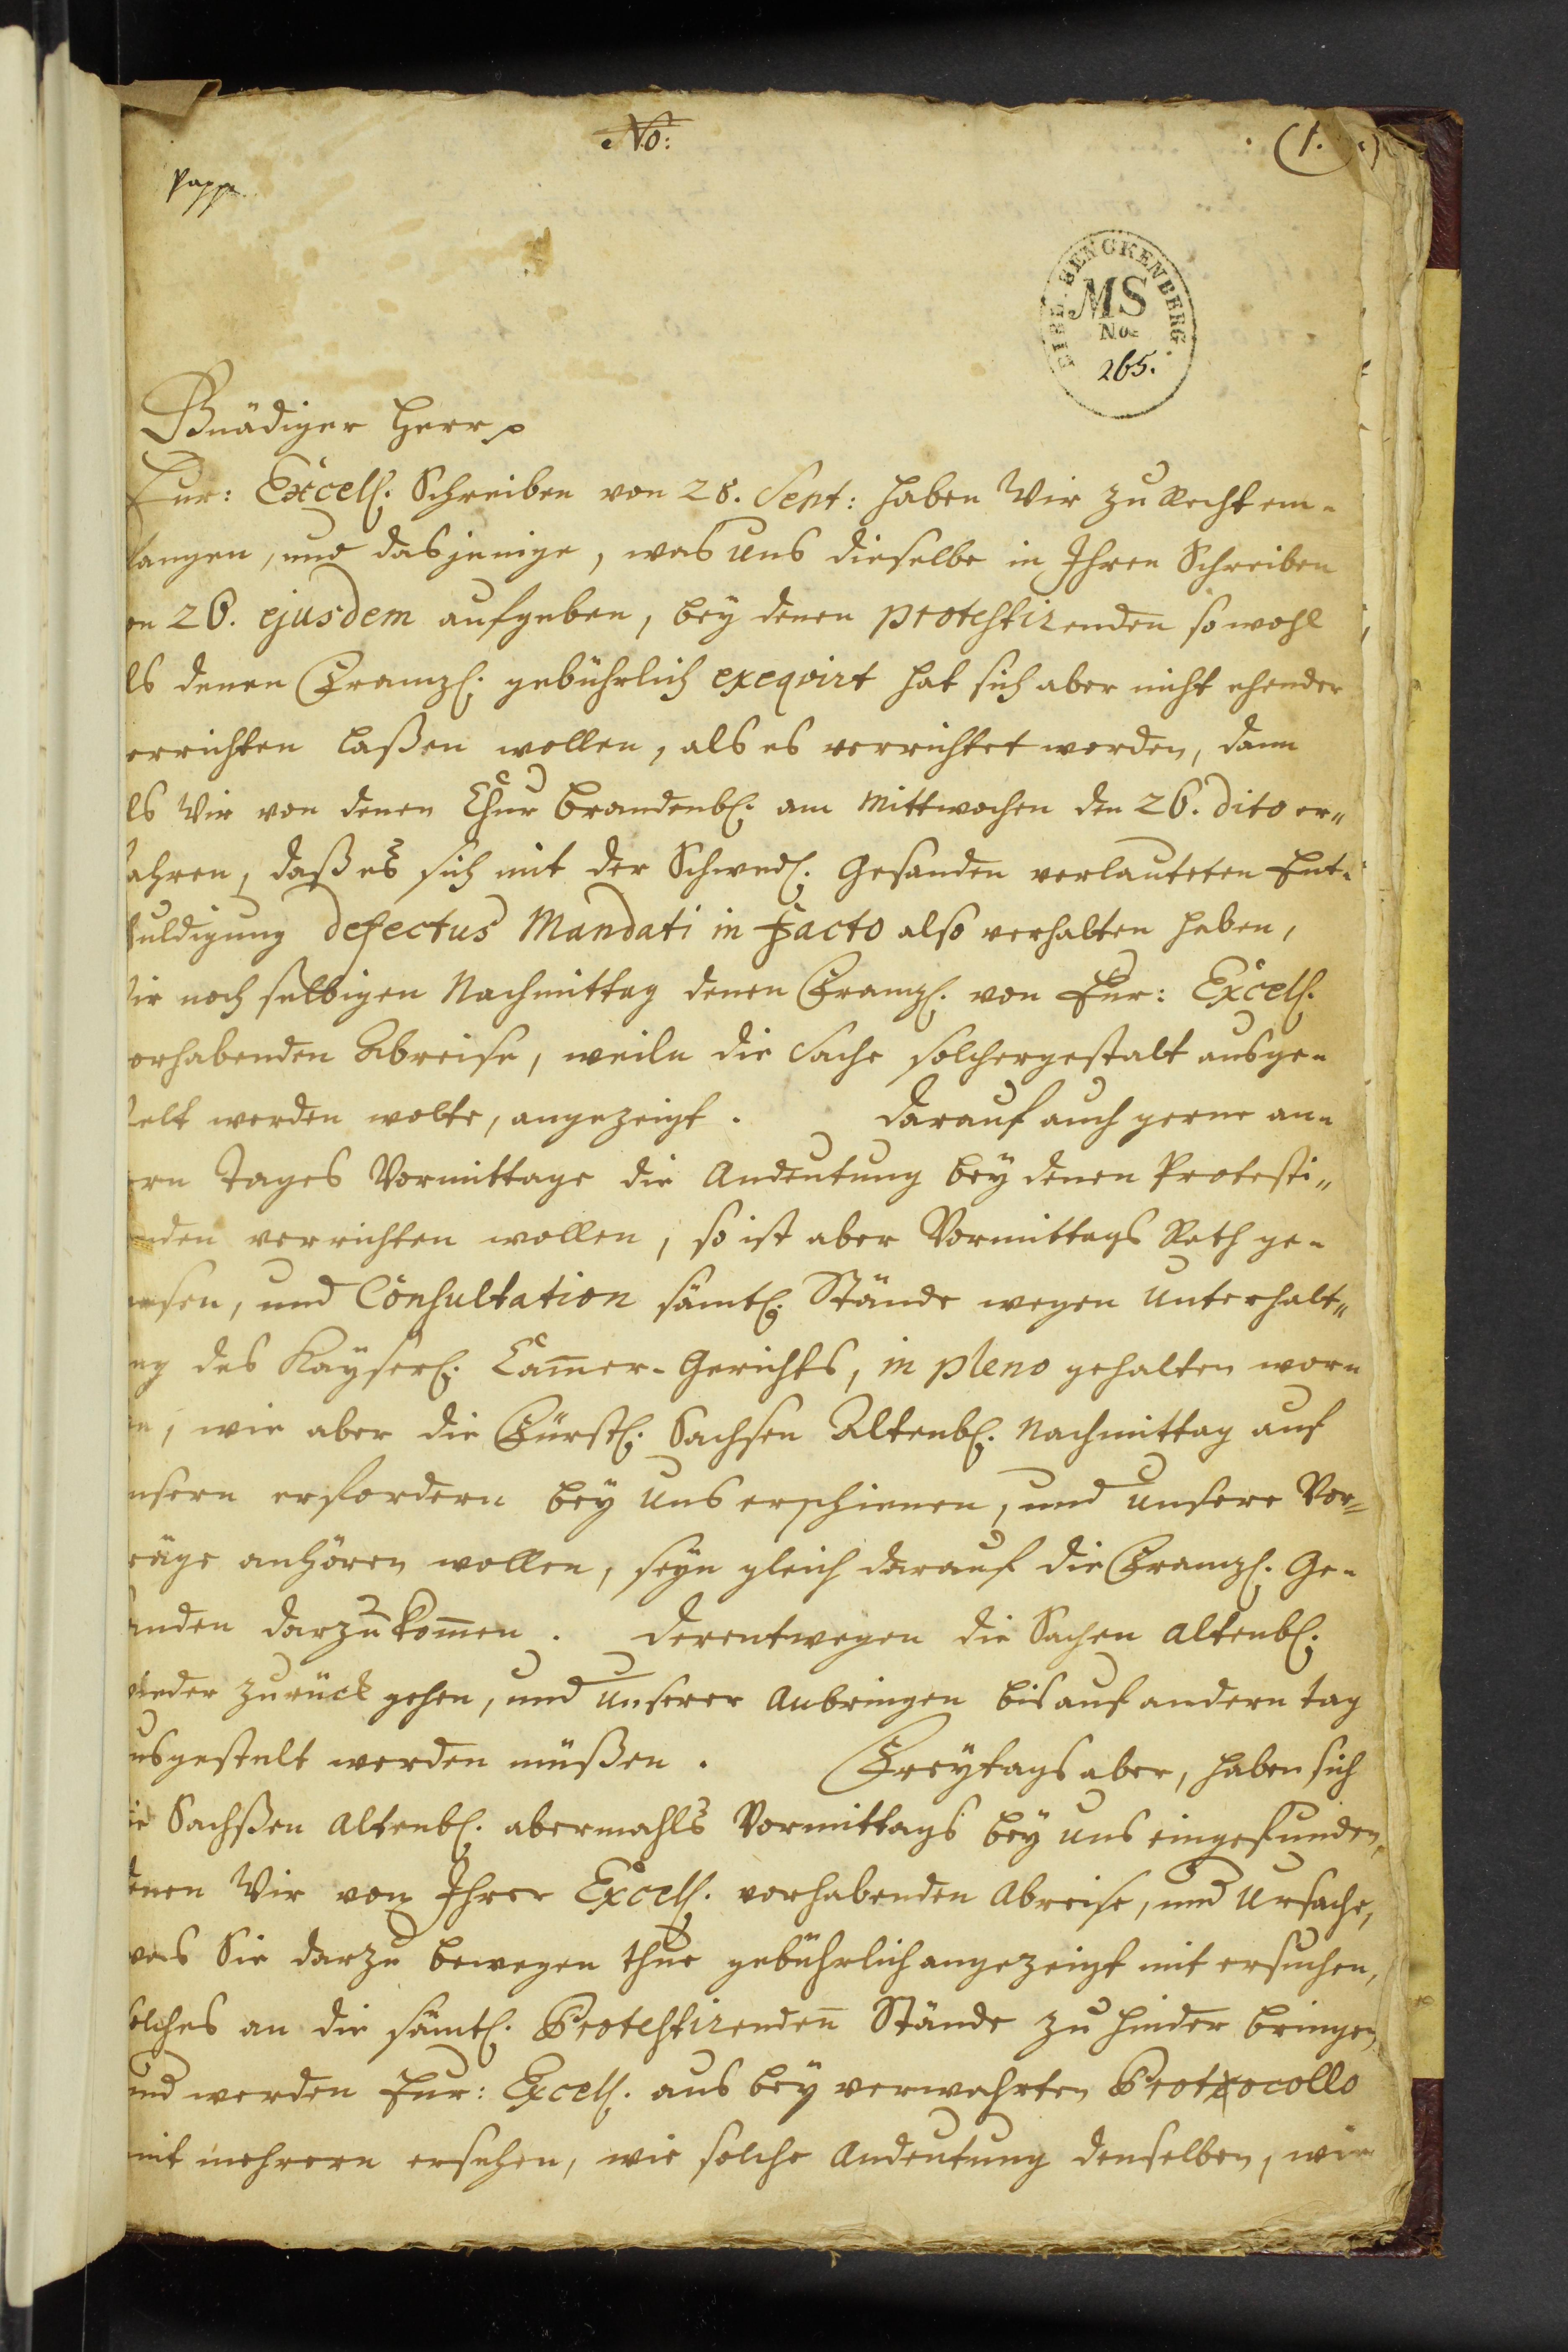 No:
(1.)
BIBL. SENCKENBERG.
MS
No.
265.
Gnädiger Herr
Eur: Excell. Schreiben von 28. Sept: haben Wir zu Recht em-
fangen, und dasjenige, was uns dieselbe in Ihren Schreiben
on 26. ejusdem aufgeben, bey denen protestirenden so wohl
ls denen Franzs. gebührlich exeqvirt hat sich aber nicht ehender
errichten laßen wollen, als es verrichtet worden, dann
ls Wir von denen Chur Brandenbl. am Mittwochen den 26. dito er„
fahren, daß es sich mit der Schwed. Gesanden verlauteten Ent-
huldigung defectus Mandati in facto also verhalten haben,
ir noch selbigen Nachmittag denen Franzs. von Eur: Excell.
orhabenden Abreise, weiln die Sache solchergestalt ausge-
telt werden wolte, angezeigt. Darauf auch gerne an-
ern Tages Vormittage die Andeutung bey denen Protesti„
nden verrichten wollen, so ist aber Vormittags Rath ge-
wesen, und Consultation sämtl. Stände wegen Unterhalt„
ng des Kayserl. Cam̅er-Gerichts, in pleno gehalten wor-
n, wie aber die Fürstl. Sachsen Altenbl. Nachmittag auf
nsern erfordern bey Uns erschienen, und unsere Vor-
räge anhören wollen, seyn gleich darauf die Franzs. Ge-
anden darzu kom̅en. Derentwegen die Sachen Altenbl.
wieder zurück gehen, und Unserer Anbringen bis auf andern tag
usgestelt werden müßen. Freytags aber, haben sich
ie Sachßen Altenbl. abermahls Vormittags bey uns eingefunden,
denen Wir von Ihrer Excell. vorhabenden Abreise, und Ursache,
was Sie darzu bewegen thue gebührlich angezeigt mit ersuchen,
solches an die sämtl. Protestirenden̅ Stände zu hinder bringen,
und werden Eur: Excell. aus bey verwahrten Protocollo
mit mehrern ersehen, wie solche Andeutung denselben, wie